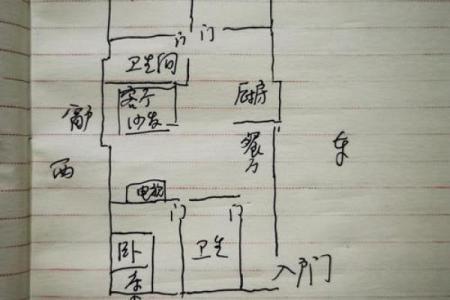 门 门
卫生间
客厅
沙发
厨房
窗户
餐厅
东
西
电视
门 门
卧
床
卫生
入户门